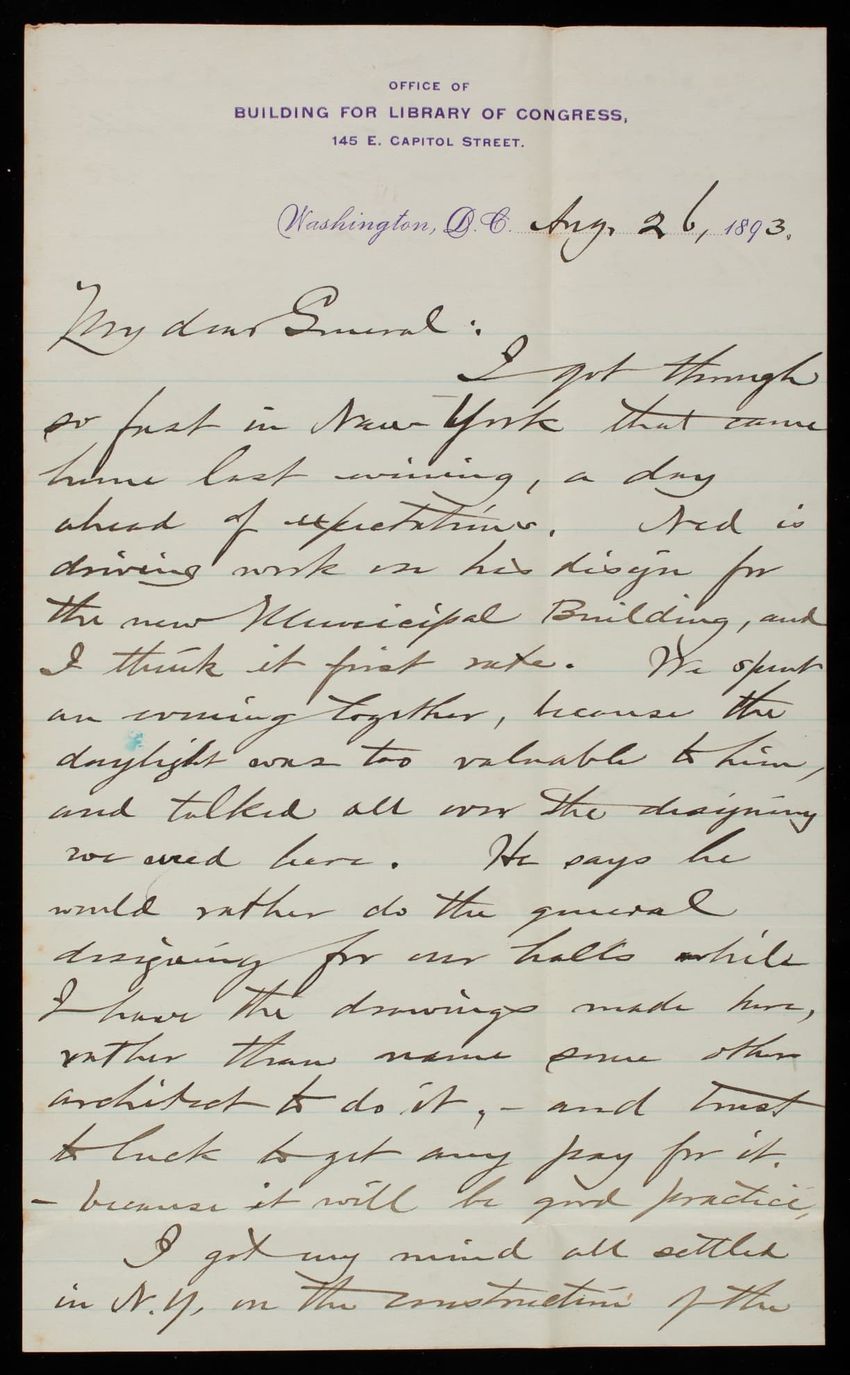 OFFICE OF
BUILDING FOR LIBRARY OF CONGRESS,
145 E. CAPITOL STREET.
Washington, D.C. Aug. 26, 1893.
My dear General:
I got through
so fast in New York that came
home last evening, a day
ahead of expectations. Ned is
driving work on his design for
the new Municipal Building, and
I think it first rate. We spent
an evening together, because the
daylight was too valuable to him,
and talked all over the designing
we need here. He says he
would rather do the general
designing for our halls while
I have the drawings made here,
rather than name some other
architect to do it, - and trust
to luck to get any pay for it.
- because it will be good practice,
I got my mind all settled
in N.Y. on the construction of the